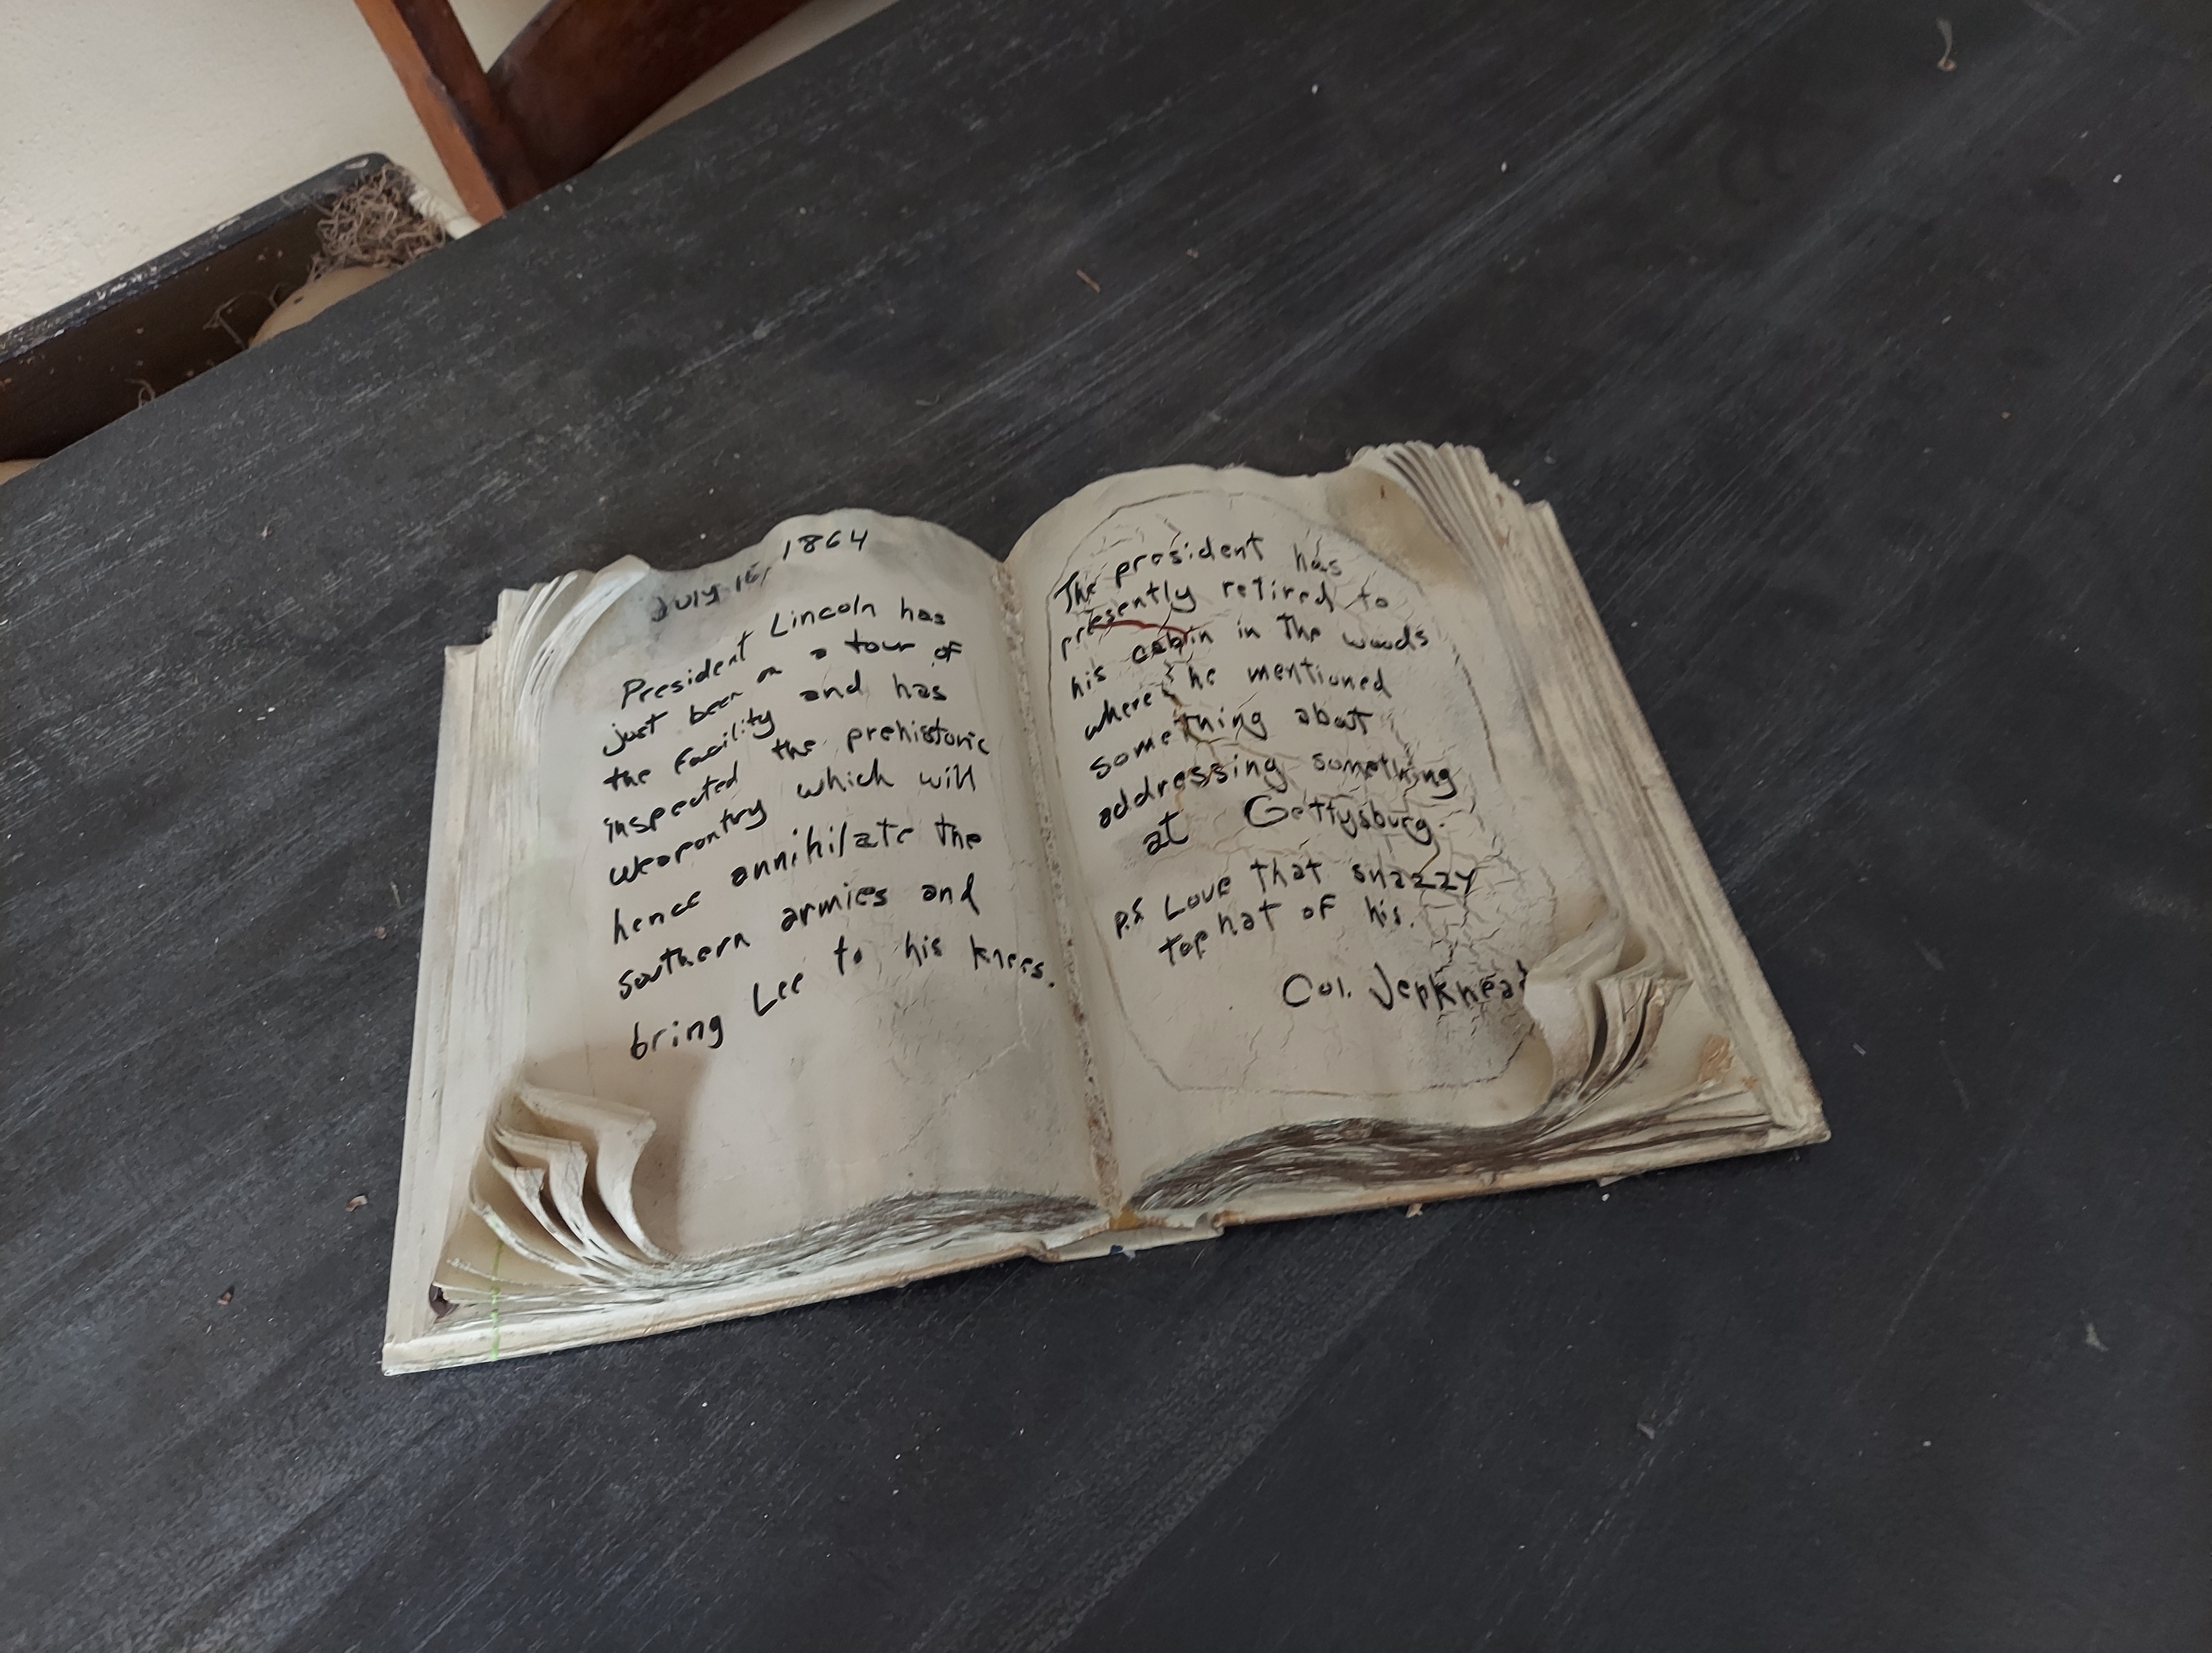 July 16, 1864
President Lincoln has
just been on a tour of
the facility and has
inspected the prehistoric
weapontry which will
hence annihilate the
southern armies and
bring Lee to his knees.
The president has
presently retired to
his cabin in the woods
where he mentioned
something about
addressing something
at Gettysburg.
P.S Love that snazzy
top hat of his.
Col.